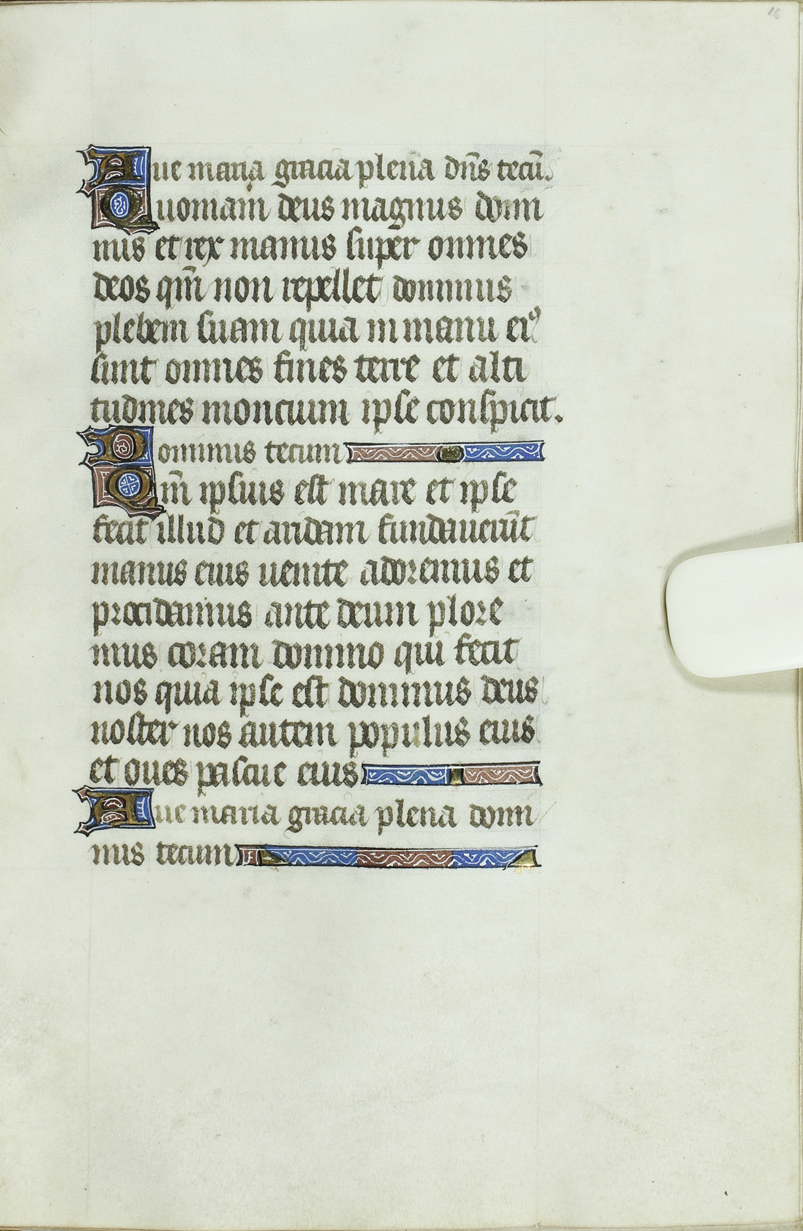 16
Aue maria gracia plena dn̄s tecū.
Quoniam deus magnus domi
nus et rex manus super omnes
deos qm̄ non repellet dominus
plebem suam quia in manu eiꝰ
sunt omnes fines terre et alti
tudines moncium ipse conspicit.
Dominus tecum
Qm̄ ipsius est mare et ipse
fecit illud et aridam fundauerūt
manus eius uenite adoremus et
procidamus ante deum plore
mus coram domino qui fecit
nos quia ipse est dominus deus
noster nos autem populus eius
et oues pascue eius
Aue maria gracia plena domi
nus tecum